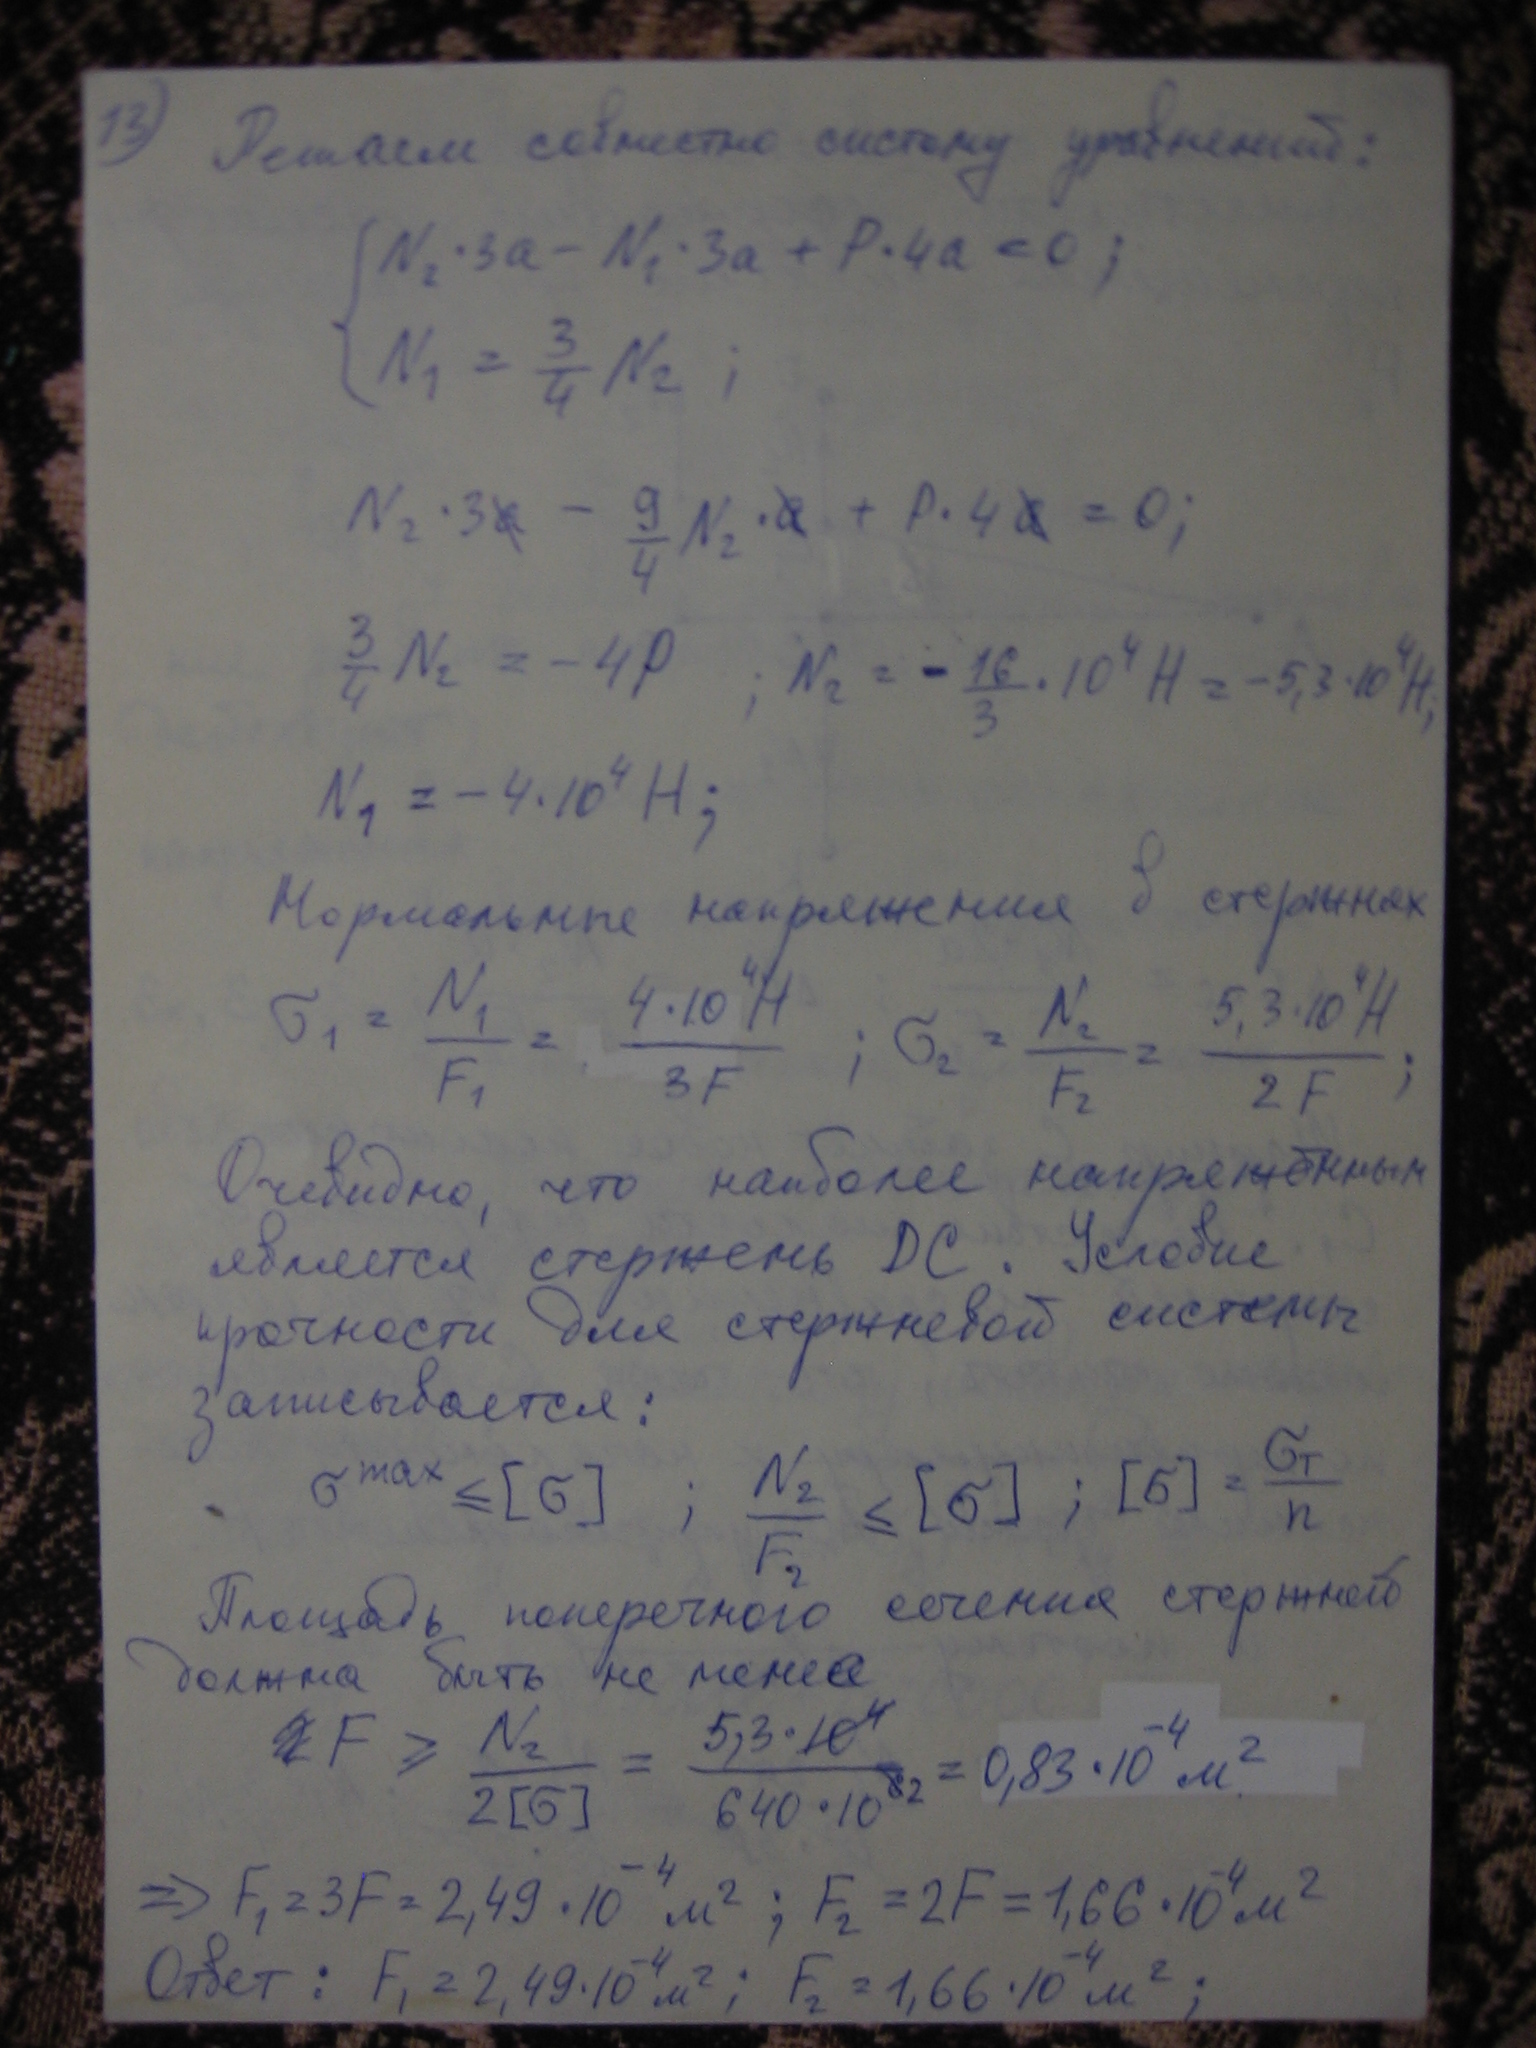 13) Решаем совместно систему уравнений:
N₂·3a − N₁·3a + P·4a = 0;
N₁ = 3/4 N₂;
N₂·3a − 9/4 N₂·a + P·4a = 0;
3/4 N₂ = −4P ; N₂ = −16/3·10⁴ Н = −5,3·10⁴ Н;
N₁ = −4·10⁴ Н;
Нормальные напряжения в стержнях
σ₁ = N₁/F₁ = 4·10⁴Н/3F ; σ₂ = N₂/F₂ = 5,3·10⁴Н/2F ;
Очевидно, что наиболее напряжённым
является стержень DC. Условие
прочности для стержневой системы
записывается:
σᵐᵃˣ ≤ [σ] ; N₂/F₂ ≤ [σ] ; [σ] = σт/n
Площадь поперечного сечения стержней
должна быть не менее
F ≥ N₂/2[σ] = 5,3·10⁴/640·10² = 0,83·10⁻⁴ м²
=> F₁ = 3F = 2,49·10⁻⁴ м² ; F₂ = 2F = 1,66·10⁻⁴ м²
Ответ: F₁ = 2,49·10⁻⁴ м² ; F₂ = 1,66·10⁻⁴ м² ;